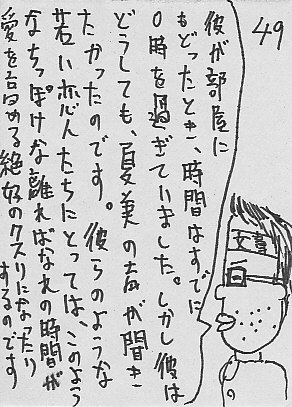 49
彼が部屋に
もどったとき、時間はすでに
0時を過ぎていました。しかし彼は
どうしても、夏美の声が聞き
たかったのです。彼らのような
若い恋人たちにとっては、このよう
なちっぽけな離ればなれの時間が
愛を高める絶好のクスリになったり
するのです